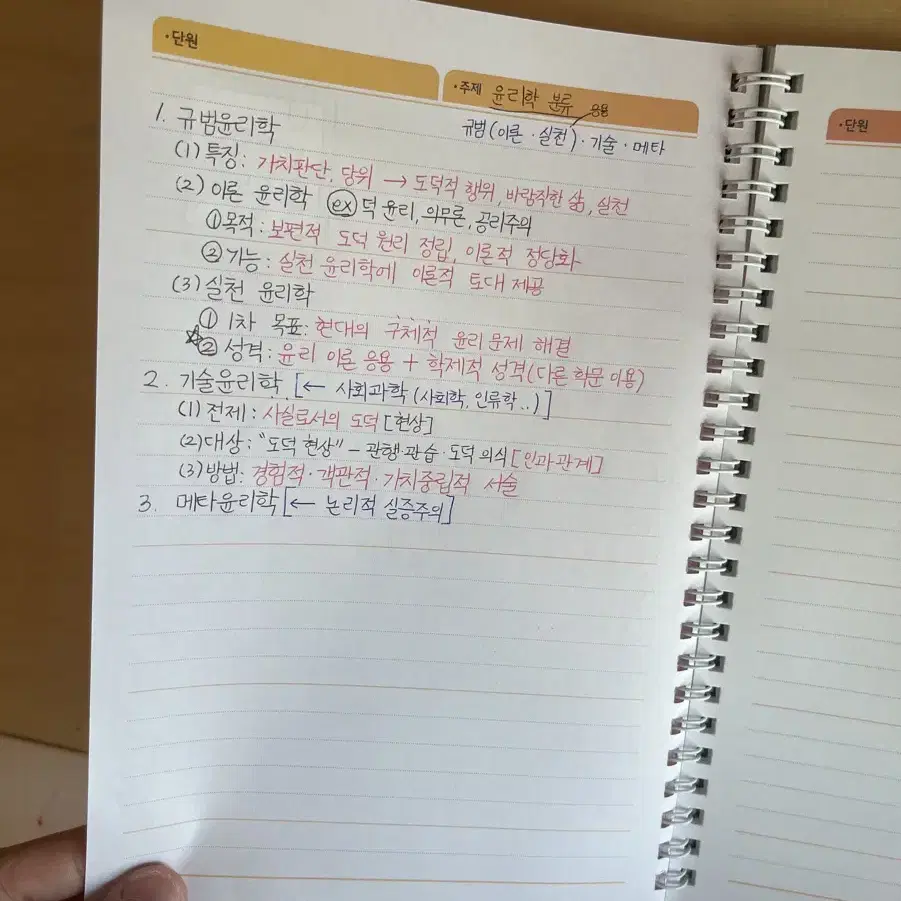 ·단원
·주제 윤리학 분류 응용
규범(이론·실천)·기술·메타
1. 규범윤리학
(1) 특징: 가치판단, 당위 → 도덕적 행위, 바람직한 삶, 실천
(2) 이론 윤리학 ex 덕 윤리, 의무론, 공리주의
①목적: 보편적 도덕 원리 정립, 이론적 정당화
②기능: 실천 윤리학에 이론적 토대 제공
(3) 실천 윤리학
① 1차 목표: 현대의 구체적 윤리 문제 해결
☆② 성격: 윤리 이론 응용 + 학제적 성격(다른 학문 이용)
2. 기술윤리학 [← 사회과학 (사회학, 인류학..)]
(1) 전제: 사실로서의 도덕 [현상]
(2) 대상: "도덕 현상" - 관행·관습·도덕 의식 [인과관계]
(3) 방법: 경험적·객관적·가치중립적 서술
3. 메타윤리학 [← 논리적 실증주의]
·단원